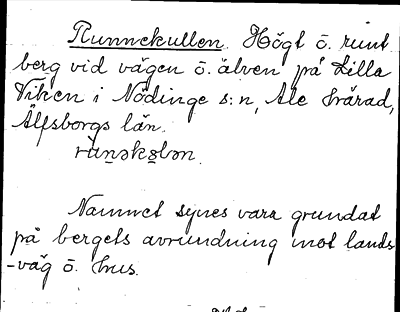 Runnekullen. Högt o. runt
berg vid vägen o. älven på Lilla
Viken i Nödinge s:n, Ale härad,
Älfsborgs län.
rùnəkɷlən.
Namnet synes vara grundat
på bergets avrundning mot lands-
-väg o. hus.